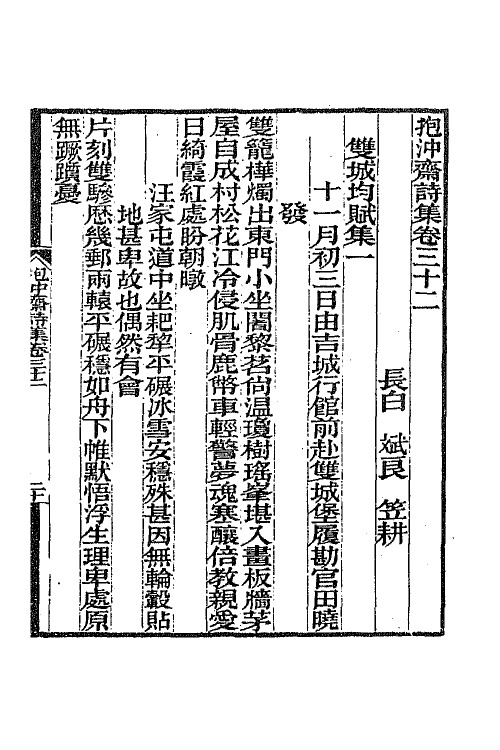 抱沖齋詩集卷三十二
長白　斌良　笠耕
雙城均賦集一
十一月初三日由吉城行館前赴雙城堡履勘官田曉
發
雙籠樺燭出東門小坐闍黎茗尙溫瓊樹瑤峯堪入畫板牆茅
屋自成村松花江冷侵肌骨鹿幣車輕警夢魂寒釀倍教親愛
日綺霞紅處盼朝暾
汪家屯道中坐耙犂平碾冰雪安穩殊甚因無輪轂貼
地甚卑故也偶然有會
片刻雙驂歷幾郵雨轅平碾穩如舟下帷默悟浮生理卑處原
無蹶躓憂
抱沖齋詩集卷三十二